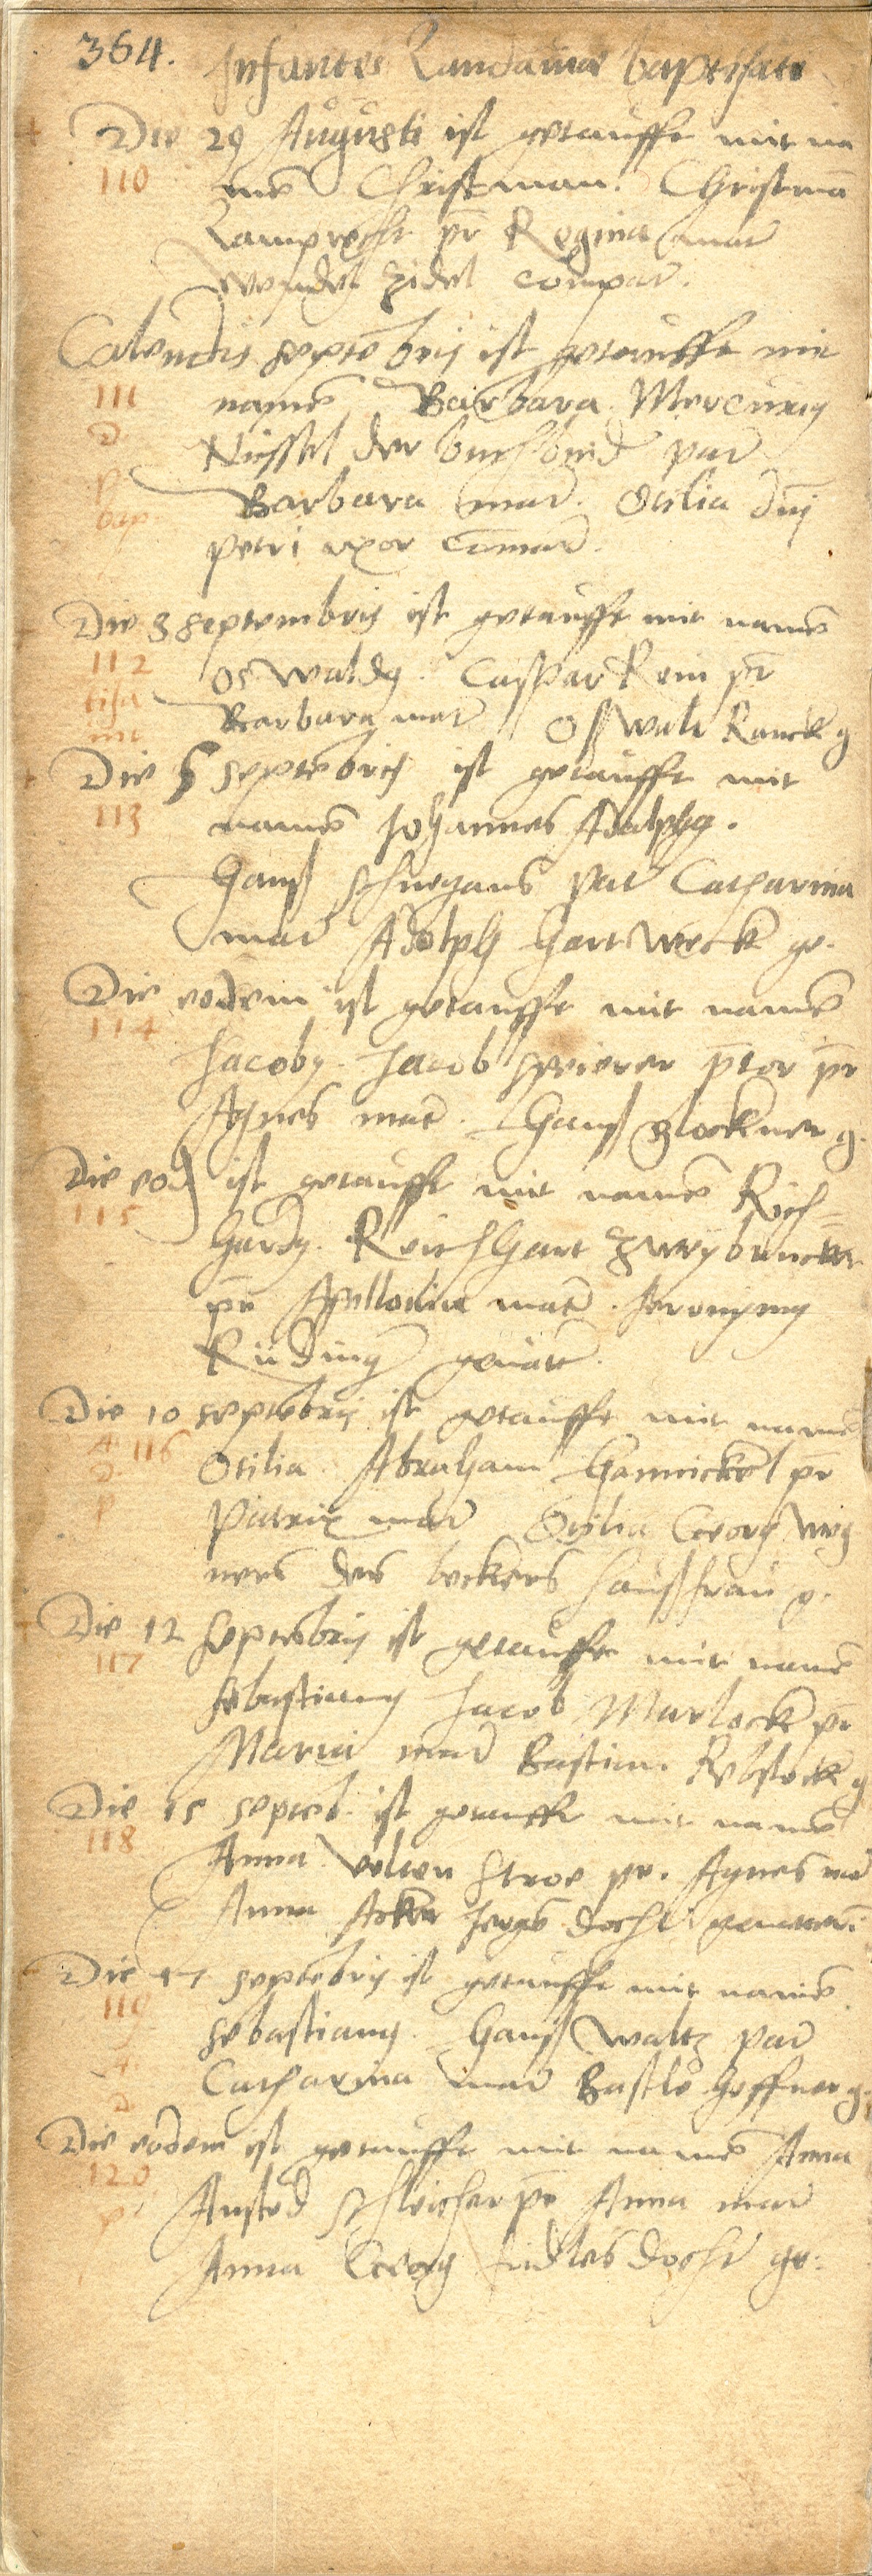 364. Infantes Landauiae baptisati
Die 29 Augusti ist getaufft mit na
110 mē Christman. Christmā
Lamprecht pr̄ Regina mat
Wendel Zidel compat.
Calendis septēbris ist getaufft mit
111 namē Barbara. Mercurius
D. Nüssel der buchbind pat
p Barbara mat. Otilia dn̄i
bap petri uxor cōmat.
Die 3 septembris ist getaufft mit namē
112 Oswaldus. Caspar Rem pr̄
tisa Barbara mat Oßwalt Ranck g
Die 5 septēbris ist getaufft mit
113 namē Johannes Adolphus.
Hanß schnegans pat Catharina
mat Adolph Hartweck ge.
Die eodem ist getaufft mit namē
114 Jacobus. Jacob spierer p̄tor pr̄
Agnes mat. Hanß glockner g.
Die eod ist getaufft mit namē Rich=
115 hardus. Reichhart Zweybrucker
pr̄ Apollonia mat. Jeronymus
Rüding geuatt.
Die 10 septēbris ist getaufft mit namē
A 116 Otilia. Abraham Hannickel pr̄
D. p Patrix mat Otilia Georg Wig
ners des beckers haußfrau g.
Die 12 septēbris ist getaufft mit namē
117 Sebastianus Jacob Murlock pr̄
Maria mat Bastian Rebstock g
Die 15 septeb. ist getaufft mit namē
118 Anna. Velten Stroe pr. Agnes mat
Anna Acker Jergē docht
Die 17 septēbris ist getaufft mit namē
119 Sebastianus. Hanß Waltz pat
A. Catharina mat Bastle Heffner g.
Die eodem ist getaufft mit namē Anna
120 Ansted schleicher pr̄ Anna mat
p Anna Georg docht ge.